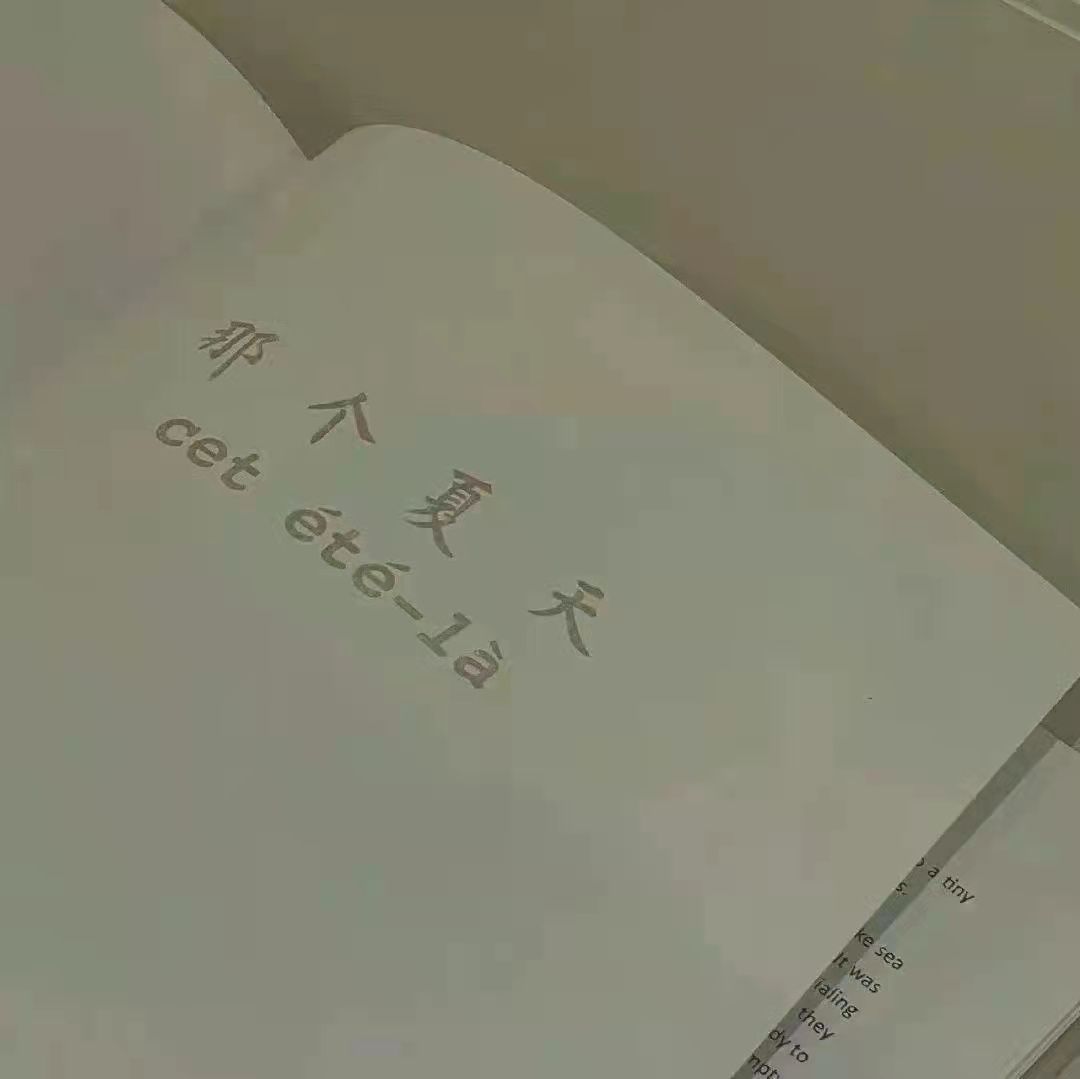 那个夏天
cet été-là
a tiny
s.
ke sea
It was
ialing
they
dy to